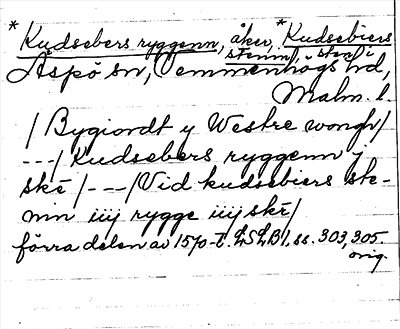 *Kudsebers ryggenn, åker, *Kudsebiers
stenni, sten i
Äspö sn, Vemmenhögs hd,
Malm. l.
/Bygiordt y Westre wongh/
---/Kudsebers ryggenn 7
skē/---/Vid kudsebiers ste-
nin iiij rygge iiij skē/
förra delen av 1570-t. LSLB1, ss. 303, 305.
orig.